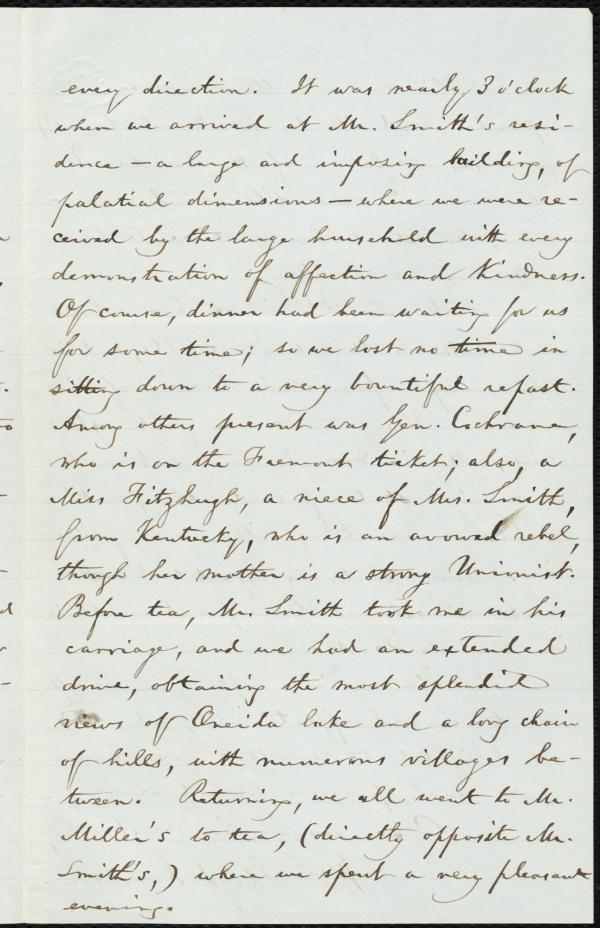 every direction. It was nearly 3 o'clock
when we arrived at Mr. Smith's resi-
dence — a large and imposing building, of
palatial dimensions — where we were re-
ceived by the large household with every
demonstration of affection and kindness.
Of course, dinner had been waiting for us
for some time; so we lost no time in
sitting down to a very bountiful repast.
Among others present was Gen. Cochrane,
who is on the Fremont ticket; also, a
Miss Fitzhugh, a niece of Mrs. Smith,
from Kentucky, who is an avowed rebel,
though her mother is a strong Unionist.
Before tea, Mr. Smith took me in his
carriage, and we had an extended
drive, obtaining the most splendid
views of Oneida lake and a long chain
of hills, with numerous villages be-
tween. Returning, we all went to Mr.
Miller's to tea, (directly opposite Mr.
Smith's,) where we spent a very pleasant
evening.